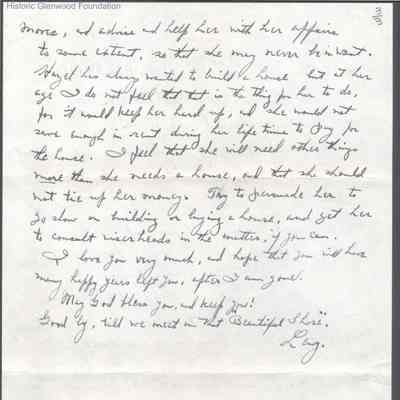 Historic Glenwood Foundation
moore, and advise and help her with her affairs
to some extent, so that she may never be in want.
Hazel has always wanted to build a house but at her
age I do not feel that that is the thing for her to do,
for it would keep her hard up, and she would not
save enough in rent during her life time to pay for
the house. I feel that she will need other things
more than she needs a house, and that she should
not tie up her money. Try to persuade her to
go slow on building or buying a house, and get her
to consult wiser heads in the matter, if you can.
I love you very much, and hope that you will have
many happy years left you, after I am gone.
May God bless you, and keep you!
Good by, till we meet on "that Beautiful Shore".